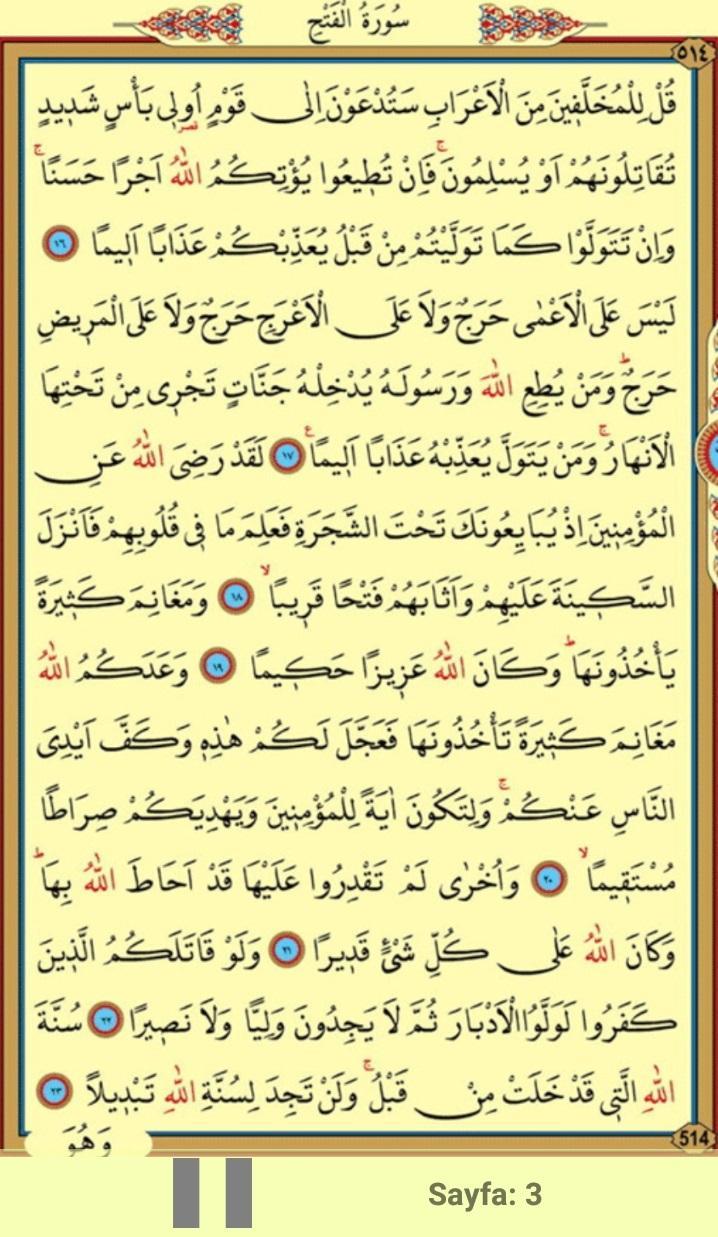 سُورَةُ الْفَتْحِ
٥١٤
قُلْ لِلْمُخَلَّفٖينَ مِنَ الْاَعْرَابِ سَتُدْعَوْنَ اِلٰى قَوْمٍ اُو۬لٖى بَأْسٍ شَدٖيدٍ
تُقَاتِلُونَهُمْ اَوْ يُسْلِمُونَۚ فَاِنْ تُطٖيعُوا يُؤْتِكُمُ اللّٰهُ اَجْرًا حَسَنًاۚ
وَاِنْ تَتَوَلَّوْا كَمَا تَوَلَّيْتُمْ مِنْ قَبْلُ يُعَذِّبْكُمْ عَذَابًا اَلٖيمًا ١٦
لَيْسَ عَلَى الْاَعْمٰى حَرَجٌ وَلَا عَلَى الْاَعْرَجِ حَرَجٌ وَلَا عَلَى الْمَرٖيضِ
حَرَجٌؕ وَمَنْ يُطِعِ اللّٰهَ وَرَسُولَهُ يُدْخِلْهُ جَنَّاتٍ تَجْرٖى مِنْ تَحْتِهَا
الْاَنْهَارُۚ وَمَنْ يَتَوَلَّ يُعَذِّبْهُ عَذَابًا اَلٖيمًاࣖ ١٧ لَقَدْ رَضِىَ اللّٰهُ عَنِ
الْمُؤْمِنٖينَ اِذْ يُبَايِعُونَكَ تَحْتَ الشَّجَرَةِ فَعَلِمَ مَا فٖى قُلُوبِهِمْ فَاَنْزَلَ
السَّكٖينَةَ عَلَيْهِمْ وَاَثَابَهُمْ فَتْحًا قَرٖيبًاۙ ١٨ وَمَغَانِمَ كَثٖيرَةً
يَأْخُذُونَهَاؕ وَكَانَ اللّٰهُ عَزٖيزًا حَكٖيمًا ١٩ وَعَدَكُمُ اللّٰهُ
مَغَانِمَ كَثٖيرَةً تَأْخُذُونَهَا فَعَجَّلَ لَكُمْ هٰذِهٖ وَكَفَّ اَيْدِىَ
النَّاسِ عَنْكُمْۚ وَلِتَكُونَ اٰيَةً لِلْمُؤْمِنٖينَ وَيَهْدِيَكُمْ صِرَاطًا
مُسْتَقٖيمًاۙ ٢٠ وَاُخْرٰى لَمْ تَقْدِرُوا عَلَيْهَا قَدْ اَحَاطَ اللّٰهُ بِهَاؕ
وَكَانَ اللّٰهُ عَلٰى كُلِّ شَىْءٍ قَدٖيرًا ٢١ وَلَوْ قَاتَلَكُمُ الَّذٖينَ
كَفَرُوا لَوَلَّوُا الْاَدْبَارَ ثُمَّ لَا يَجِدُونَ وَلِيًّا وَلَا نَصٖيرًا ٢٢ سُنَّةَ
اللّٰهِ الَّتٖى قَدْ خَلَتْ مِنْ قَبْلُۚ وَلَنْ تَجِدَ لِسُنَّةِ اللّٰهِ تَبْدٖيلًا ٢٣
وَهُوَ
514
Sayfa: 3